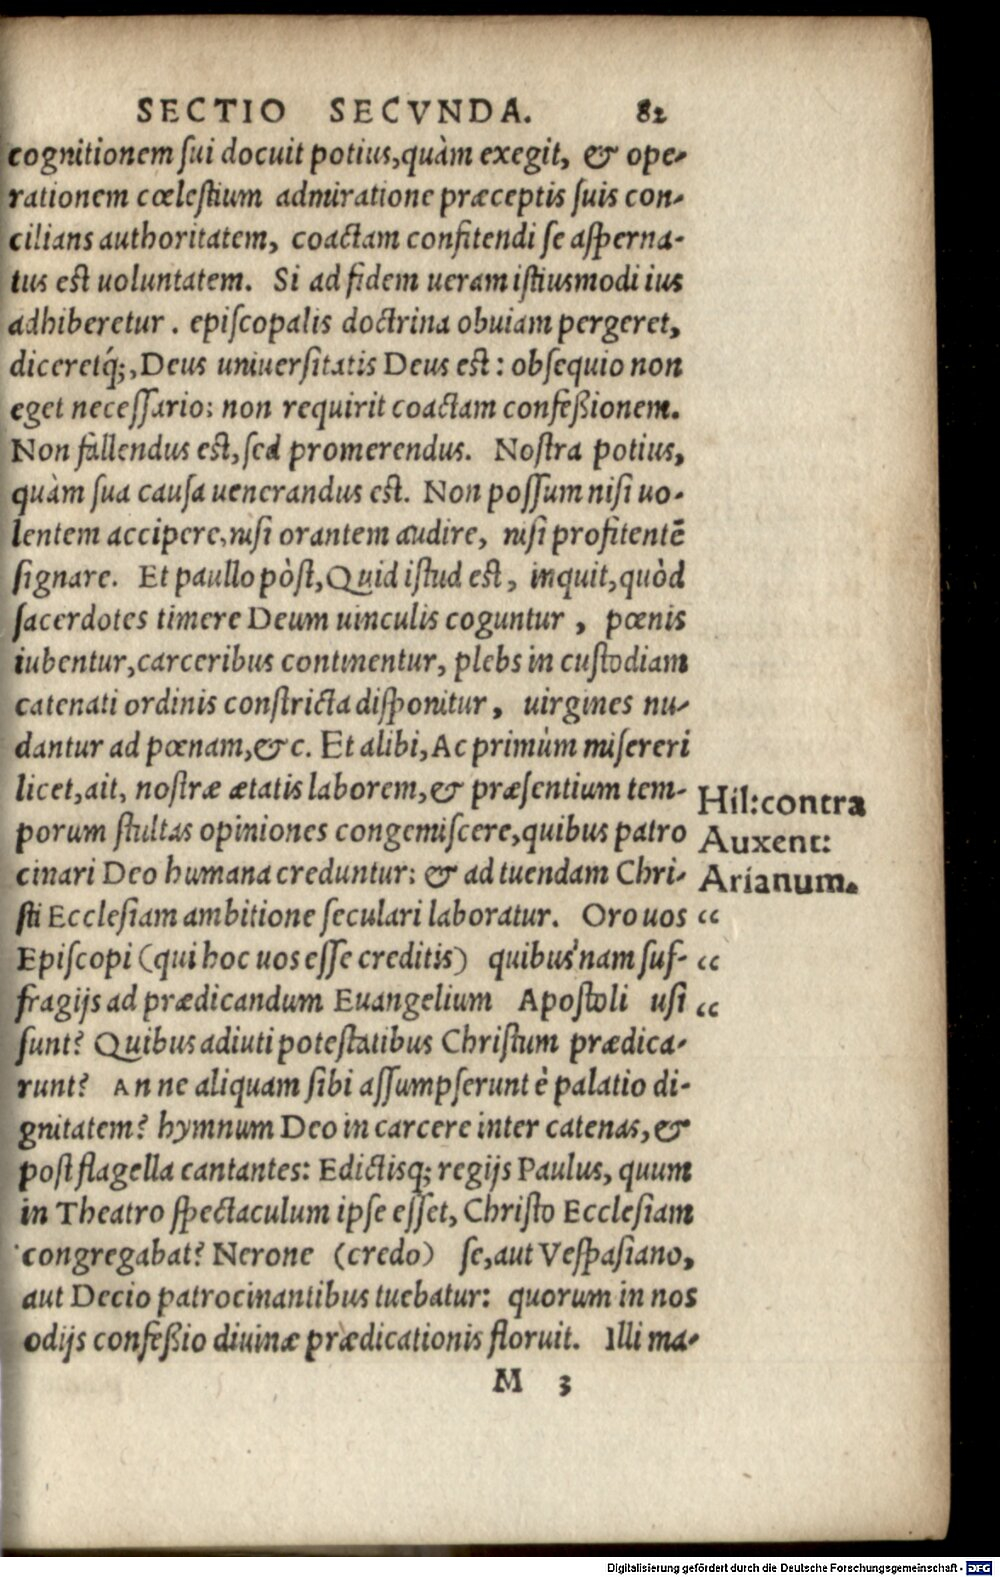 SECTIO SECVNDA. 82
cognitionem sui docuit potius, quàm exegit, & ope-
rationem cœlestium admiratione præceptis suis con-
cilians authoritatem, coactam confitendi se asperna-
tus est uoluntatem. Si ad fidem ueram istiusmodi ius
adhiberetur. episcopalis doctrina obuiam pergeret,
diceretq́;, Deus uniuersitatis Deus est: obsequio non
eget necessario: non requirit coactam confeßionem.
Non fallendus est, sed promerendus. Nostra potius,
quàm sua causa uenerandus est. Non possum nisi uo-
lentem accipere, nisi orantem audire, nisi profitentē
signare. Et paullo pòst, Quid istud est, inquit, quòd
sacerdotes timere Deum uinculis coguntur, pœnis
iubentur, carceribus continentur, plebs in custodiam
catenati ordinis constricta disponitur, uirgines nu-
dantur ad pœnam, &c. Et alibi, Ac primùm misereri
licet, ait, nostræ ætatis laborem, & præsentium tem-
porum stultas opiniones congemiscere, quibus patro
cinari Deo humana creduntur: & ad tuendam Chri-
sti Ecclesiam ambitione seculari laboratur. Oro uos
Episcopi (qui hoc uos esse creditis) quibus'nam suf-
fragijs ad prædicandum Euangelium Apostoli usi
sunt? Quibus adiuti potestatibus Christum prædica-
runt? An ne aliquam sibi assumpserunt è palatio di-
gnitatem? hymnum Deo in carcere inter catenas, &
post flagella cantantes: Edictisq; regijs Paulus, quum
in Theatro spectaculum ipse esset, Christo Ecclesiam
congregabat? Nerone (credo) se, aut Vespasiano,
aut Decio patrocinantibus tuebatur: quorum in nos
odijs confeßio diuinæ prædicationis floruit. Illi ma-
M 3
Hil: contra
Auxent:
Arianum.
“
“
“
Digitalisierung gefördert durch die Deutsche Forschungsgemeinschaft - DFG